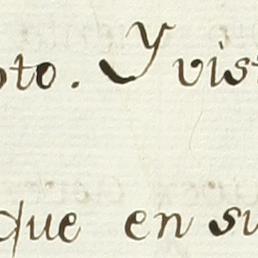 oto. Y vist
que en su